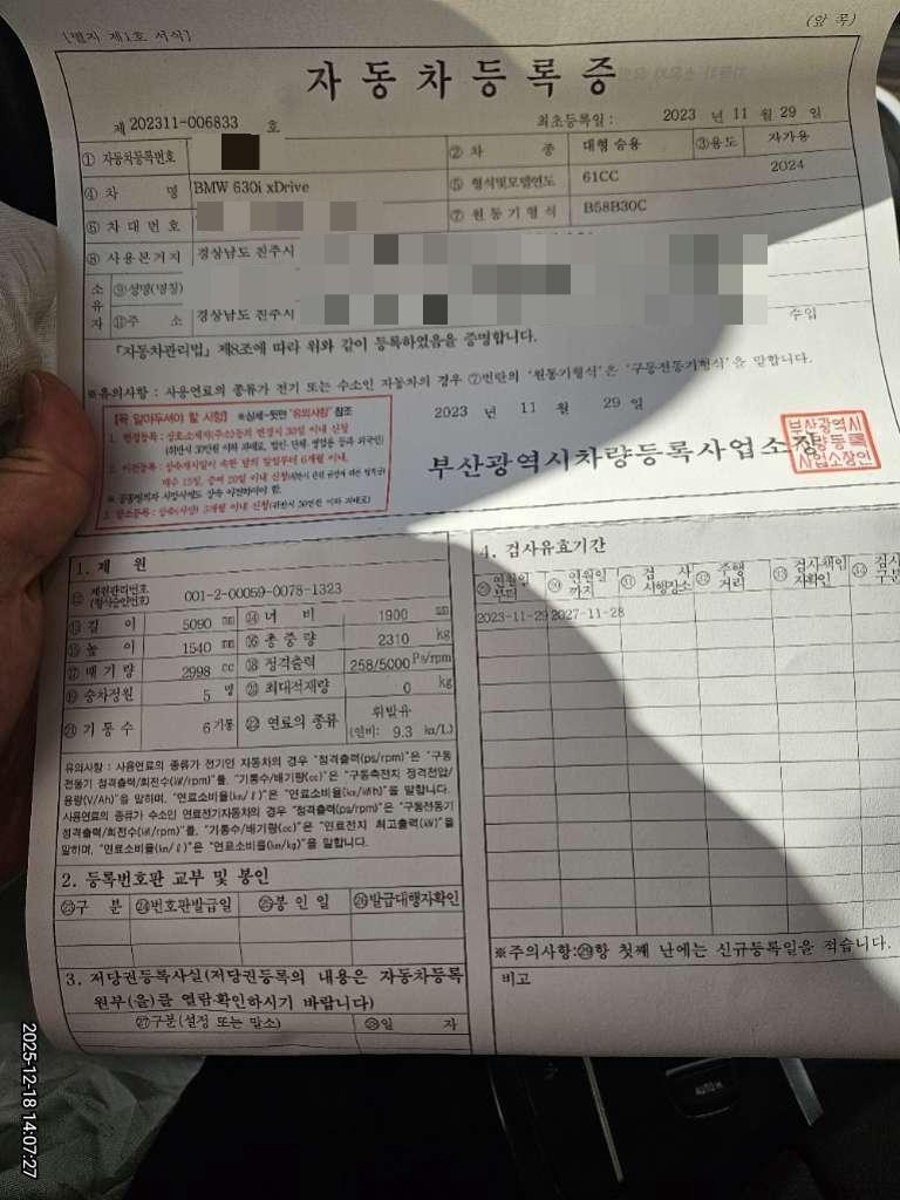 [별지 제1호 서식]
(앞 쪽)
자동차등록증
제 202311-006833 호
최초등록일 : 2023 년 11 월 29 일
① 자동차등록번호
② 차 종 대형 승용 ③용도 자가용
④ 차 명 BMW 630i xDrive
⑤ 형식및모델연도 61CC 2024
⑥ 차대번호
⑦ 원동기형식 B58B30C
⑧ 사용본거지 경상남도 진주시
소유자
⑨성명(명칭)
⑪주 소 경상남도 진주시
수입
『자동차관리법』 제8조에 따라 위와 같이 등록하였음을 증명합니다.
※유의사항 : 사용연료의 종류가 전기 또는 수소인 자동차의 경우 ⑦번란의 '원동기형식'은 '구동전동기형식'을 말합니다.
[꼭 알아두셔야 할 사항] ※상세-뒷면 "유의사항" 참조
1. 변경등록 : 상호소재지(주소)등의 변경시 30일 이내 신청
(위반시 30만원 이하 과태료, 법인·단체·영업용 등과 외국인)
2. 이전등록 : 상속개시일이 속한 달의 말일부터 6개월 이내,
매수 15일, 증여 20일 이내 신청
3. 말소등록 : 상속(사망) 3개월 이내 신청(위반시 50만원 이하 과태료)
2023 년 11 월 29 일
부산광역시차량등록사업소장
부산광역시
차량등록
사업소장인
1. 제 원
⑫ 제원관리번호
(형식승인번호)
001-2-00059-0078-1323
⑬ 길 이 5090 mm ⑭ 너 비 1900 mm
⑮ 높 이 1540 mm ⑯ 총중량 2310 kg
⑰ 배기량 2998 cc ⑱ 정격출력 258/5000 Ps/rpm
⑲ 승차정원 5 명 ⑳ 최대적재량 0 kg
㉑ 기통수 6기통 ㉒ 연료의 종류 휘발유
(연비: 9.3 km/L)
유의사항 : 사용연료의 종류가 전기인 자동차의 경우 "정격출력(ps/rpm)"은 "구동
전동기 정격출력/회전수(㎾/rpm)"를, "기통수/배기량(cc)"은 "구동축전지 정격전압/
용량(V/Ah)"을 말하며, "연료소비율(㎞/ℓ)"은 "연료소비율(㎞/㎾h)"을 말합니다.
사용연료의 종류가 수소인 연료전기자동차의 경우 "정격출력(ps/rpm)"은 "구동전동기
정격출력/회전수(㎾/rpm)"를, "기통수/배기량(cc)"은 "연료전지 최고출력(㎾)"을
말하며, "연료소비율(㎞/ℓ)"은 "연료소비율(㎞/kg)"을 말합니다.
2. 등록번호판 교부 및 봉인
㉓구 분 ㉔번호판발급일 ㉕봉 인 일 ㉖발급대행자확인
3. 저당권등록사실(저당권등록의 내용은 자동차등록
원부(을)를 열람확인하시기 바랍니다)
㉗구분(설정 또는 말소) ㉘일 자
4. 검사유효기간
㉙ 연월일부터 ㉚ 연월일까지 ㉛ 검사시행장소 ㉜ 주행거리 ㉝ 검사책임자확인 ㉞ 검사구분
2023-11-29 2027-11-28
※주의사항:㉙항 첫째 난에는 신규등록일을 적습니다.
비고
2025-12-18 14:07:27